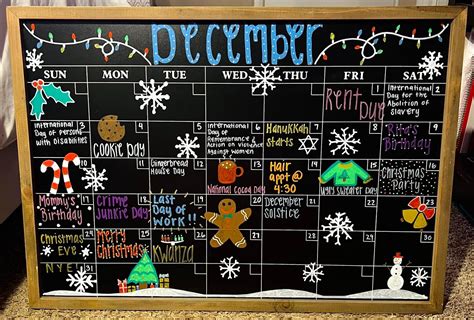 December
SUN MON TUE WED THU FRI SAT
1
Rent Due
2
International
Day for the
Abolition of
Slavery
3
International
Day of Persons
with Disabilities
4
Cookie Day
5
6
International
Day of
Remembrance
Action on Violence
Against Women
7
Hanukkah
starts
8
9
Birthday
10
11
12
Gingerbread
House Day
13
National Cocoa Day
14
Hair
appt @
4:30
15
Ugly Sweater Day
16
Christmas
Party
17
Mommy's
Birthday
18
Crime
Junkie Day
19
Last
Day of
Work!!
20
21
December
Solstice
22
23
24
Christmas
Eve
NYE 31
25
Merry
Christmas
26
Kwanza
27
28
29
30